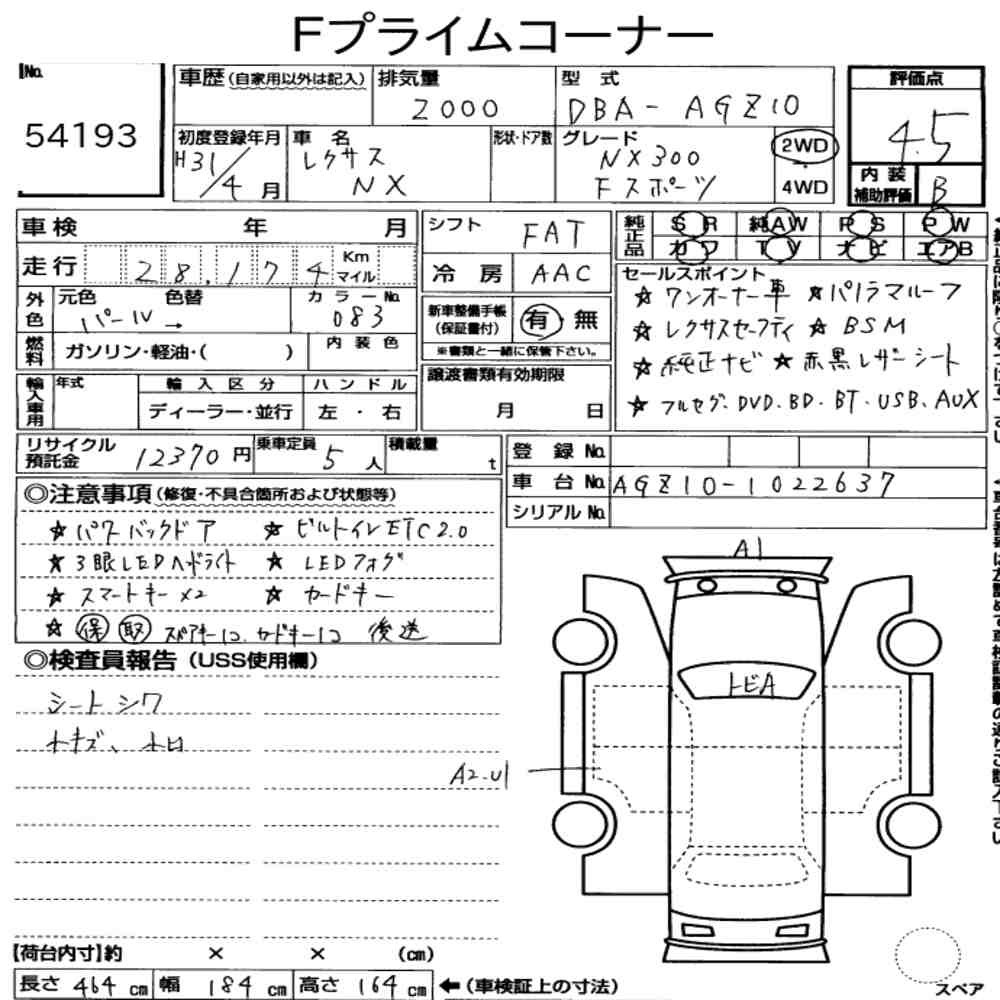 Fプライムコーナー
No.
54193
車歴(自家用以外は記入)
排気量
2000
型式
DBA-AGZ10
評価点
4.5
内装補助評価
B
初度登録年月
H31/4月
車名
レクサス
NX
形状・ドア数
グレード
NX300
Fスポーツ
2WD
4WD
車検 年 月
走行 28,174 Km マイル
シフト FAT
冷房 AAC
純正品
SR 純AW PS PW
カワ TV ナビ エアB
外色
元色 色替
パール →
カラーNo.
083
燃料
ガソリン・軽油・( )
内装色
新車整備手帳(保証書付)
有・無
※書類と一緒に保管下さい。
セールスポイント
☆ワンオーナー車 ☆パノラマルーフ
☆レクサスセーフティ ☆BSM
☆純正ナビ ☆赤黒レザーシート
☆フルセグ、DVD、BD・BT・USB、AUX
輸入車用
年式
輸入区分
ディーラー・並行
ハンドル
左・右
譲渡書類有効期限
月 日
リサイクル預託金 12370円
乗車定員 5人
積載量 t
登録No.
車台No. AGZ10-1022637
シリアルNo.
◎注意事項(修復・不具合箇所および状態等)
☆パワーバックドア ☆ビルトインETC2.0
☆3眼LEDヘッドライト ☆LEDフォグ
☆スマートキー×2 ☆カードキー
☆保 取 スペアキー1コ、カードキー1コ 後送
◎検査員報告(USS使用欄)
シートシワ
小キズ、小凹
A1
トビA
A2-U1
【荷台内寸】約 × × (cm)
長さ 464 cm 幅 184 cm 高さ 164 cm
←(車検証上の寸法)
スペア